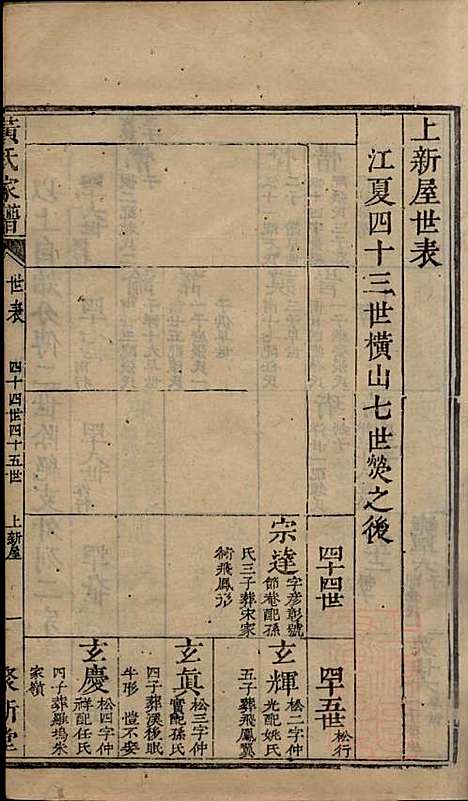 上新屋世表
江夏四十三世橫山七世熒之後
四十四世
宗達
字彦彰號
節菴配孫
氏三子葬宋家
衕飛鳳形
四十五世
松行
玄輝
松二字仲
光配姚氏
五子葬飛鳳翼
玄眞
松三字仲
實配孫氏
四子葬漢後眠
牛形 愷不安
玄慶
松四字仲
祥配任氏
四子葬雞塢朱
家嶺
黃氏家譜
世表
四十四世四十五世
上新屋
一